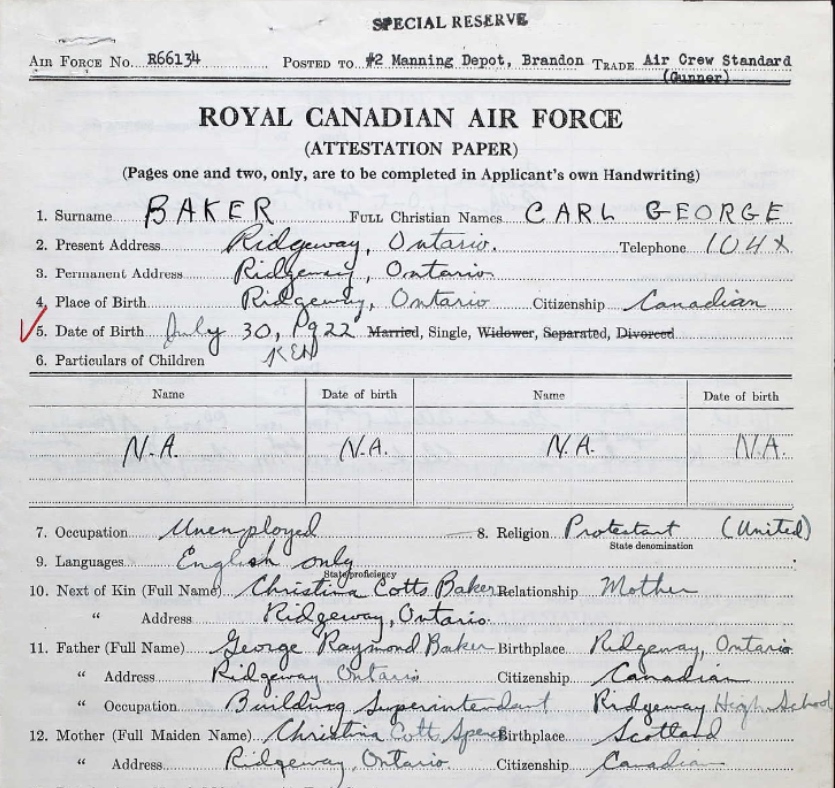 SPECIAL RESERVE
AIR FORCE No. R66134 POSTED TO #2 Manning Depot, Brandon TRADE Air Crew Standard
(Gunner)
ROYAL CANADIAN AIR FORCE
(ATTESTATION PAPER)
(Pages one and two, only, are to be completed in Applicant's own Handwriting)
1. Surname BAKER FULL Christian Names CARL GEORGE
2. Present Address Ridgeway, Ontario. Telephone 104X
3. Permanent Address Ridgeway, Ontario
4. Place of Birth Ridgeway, Ontario Citizenship Canadian
5. Date of Birth July 30, 1922 Married, Single, Widower, Separated, Divorced
6. Particulars of Children
Name Date of birth Name Date of birth
N.A. N.A. N.A. N.A.
7. Occupation Unemployed 8. Religion Protestant (United)
State denomination
9. Languages English only
State proficiency
10. Next of Kin (Full Name) Christina Cotts Baker Relationship Mother
" Address Ridgeway, Ontario.
11. Father (Full Name) George Raymond Baker Birthplace Ridgeway, Ontario
" Address Ridgeway Ontario Citizenship Canadian
" Occupation Building Superintendant Ridgeway High School
12. Mother (Full Maiden Name) Christina Cotts Birthplace Scotland
" Address Ridgeway, Ontario. Citizenship Canadian